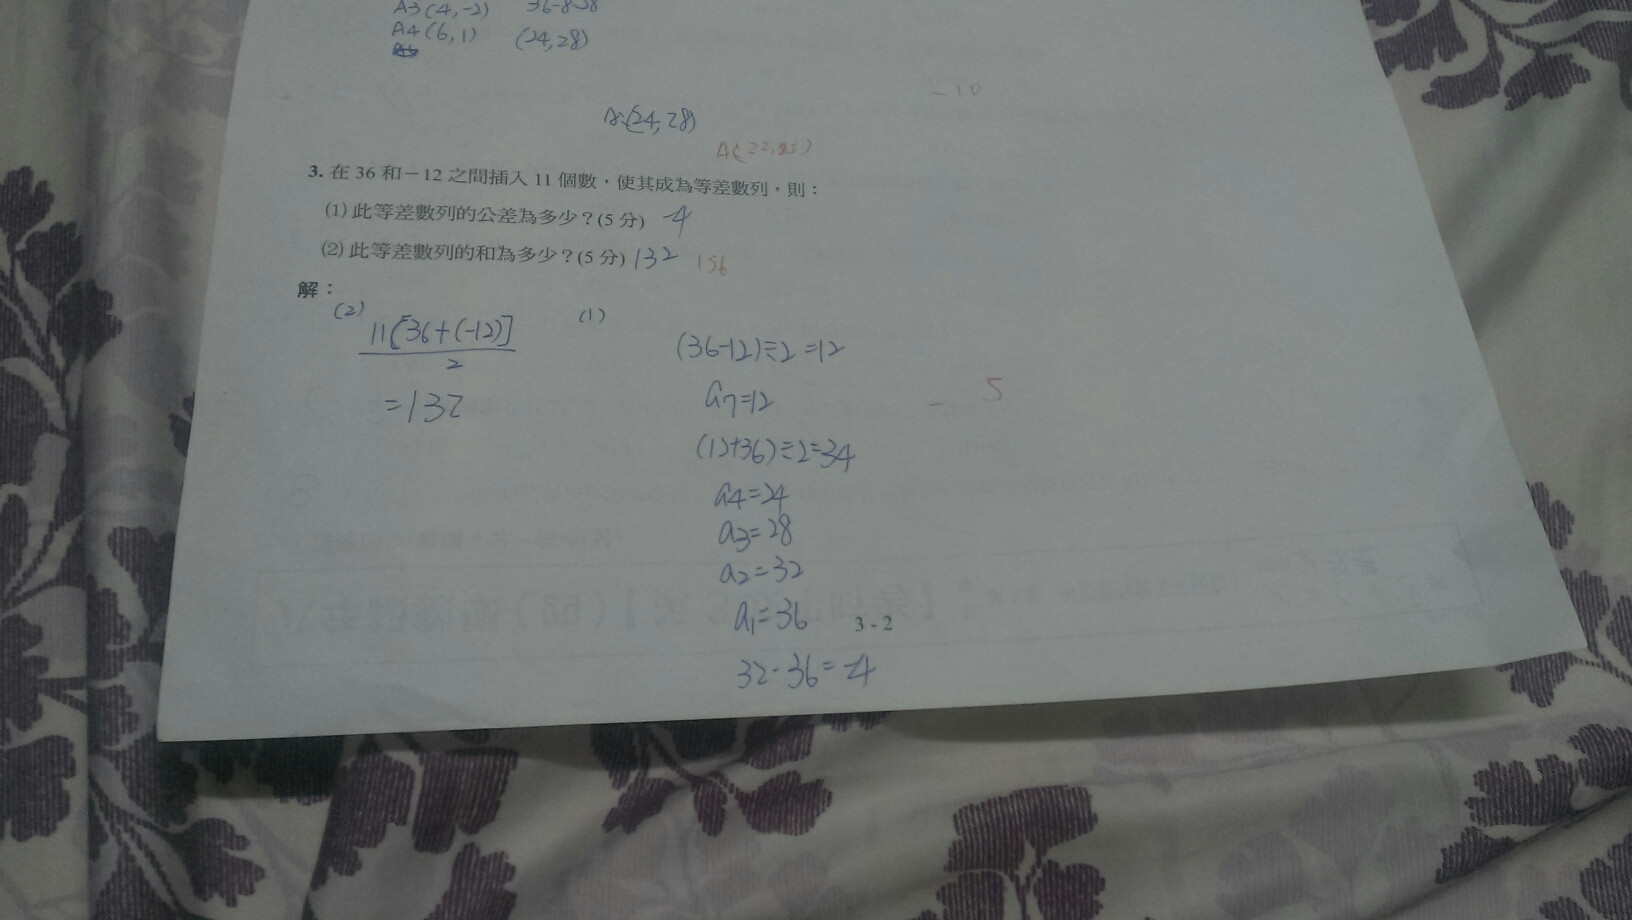 A3(4,-2) 36-8=28
A4(6,1) (24,28)
-10
A:(24,28)
A(22,25)
3. 在 36 和－12 之間插入 11 個數，使其成為等差數列，則：
(1) 此等差數列的公差為多少？(5 分) -4
(2) 此等差數列的和為多少？(5 分) 132 156
解：
(2)
11[36+(-12)]
2
=132
(1)
(36-12)÷2=12
a7=12
- 5
(12+36)÷2=34
a4=24
a3=28
a2=32
a1=36
3 - 2
32-36=-4